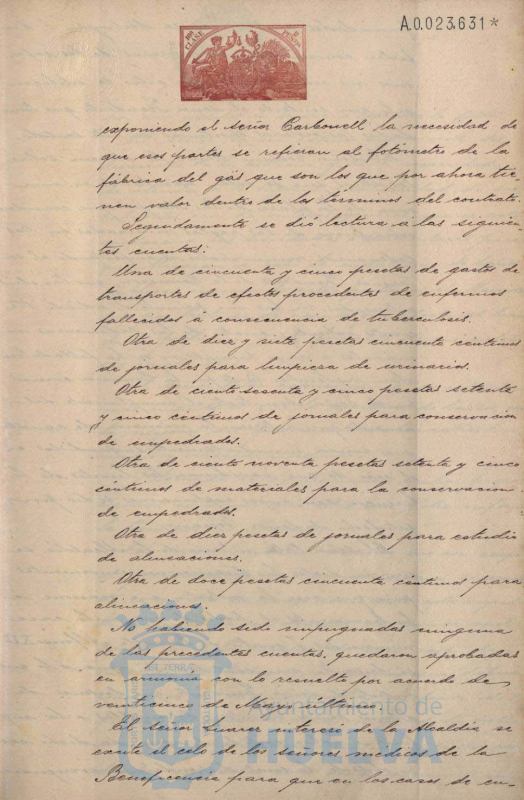 A.0.023.631*
10ª CLASE
exponiendo el señor Carbonell la necesidad de
que esos partes se refieran al fotómetro de la
fábrica del gas que son los que por ahora tie-
nen valor dentro de los términos del contrato.
Segundamente se dió lectura á las siguien-
tes cuentas.
Una de cincuenta y cinco pesetas de gastos de
transportes de efectos procedentes de enfermos
fallecidos á consecuencia de tuberculosis.
Otra de diez y siete pesetas cincuenta céntimos
de jornales para limpieza de urinarios.
Otra de ciento sesenta y cinco pesetas setenta
y cinco céntimos de jornales para conservacion
de empedrados.
Otra de ciento noventa pesetas setenta y cinco
céntimos de materiales para la conservacion
de empedrados.
Otra de diez pesetas de jornales para estudio
de alineaciones.
Otra de doce pesetas cincuenta céntimos para
alineaciones.
No habiendo sido impugnadas ninguna
de las precedentes cuentas, quedaron aprobadas
en armonía con lo resuelto por acuerdo de
veinticinco de Mayo último.
El señor Suarez interesó de la Alcaldía se
excite el celo de los señores médicos de la
Beneficencia para que en los casos de en-
Ayuntamiento de
HUELVA